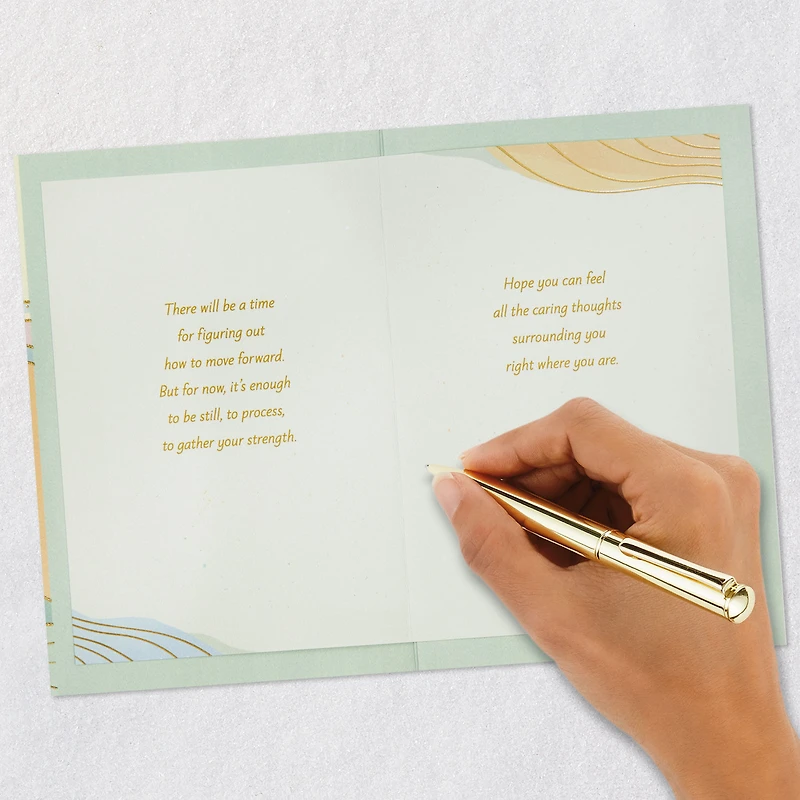 There will be a time
for figuring out
how to move forward.
But for now, it's enough
to be still, to process,
to gather your strength.
Hope you can feel
all the caring thoughts
surrounding you
right where you are.